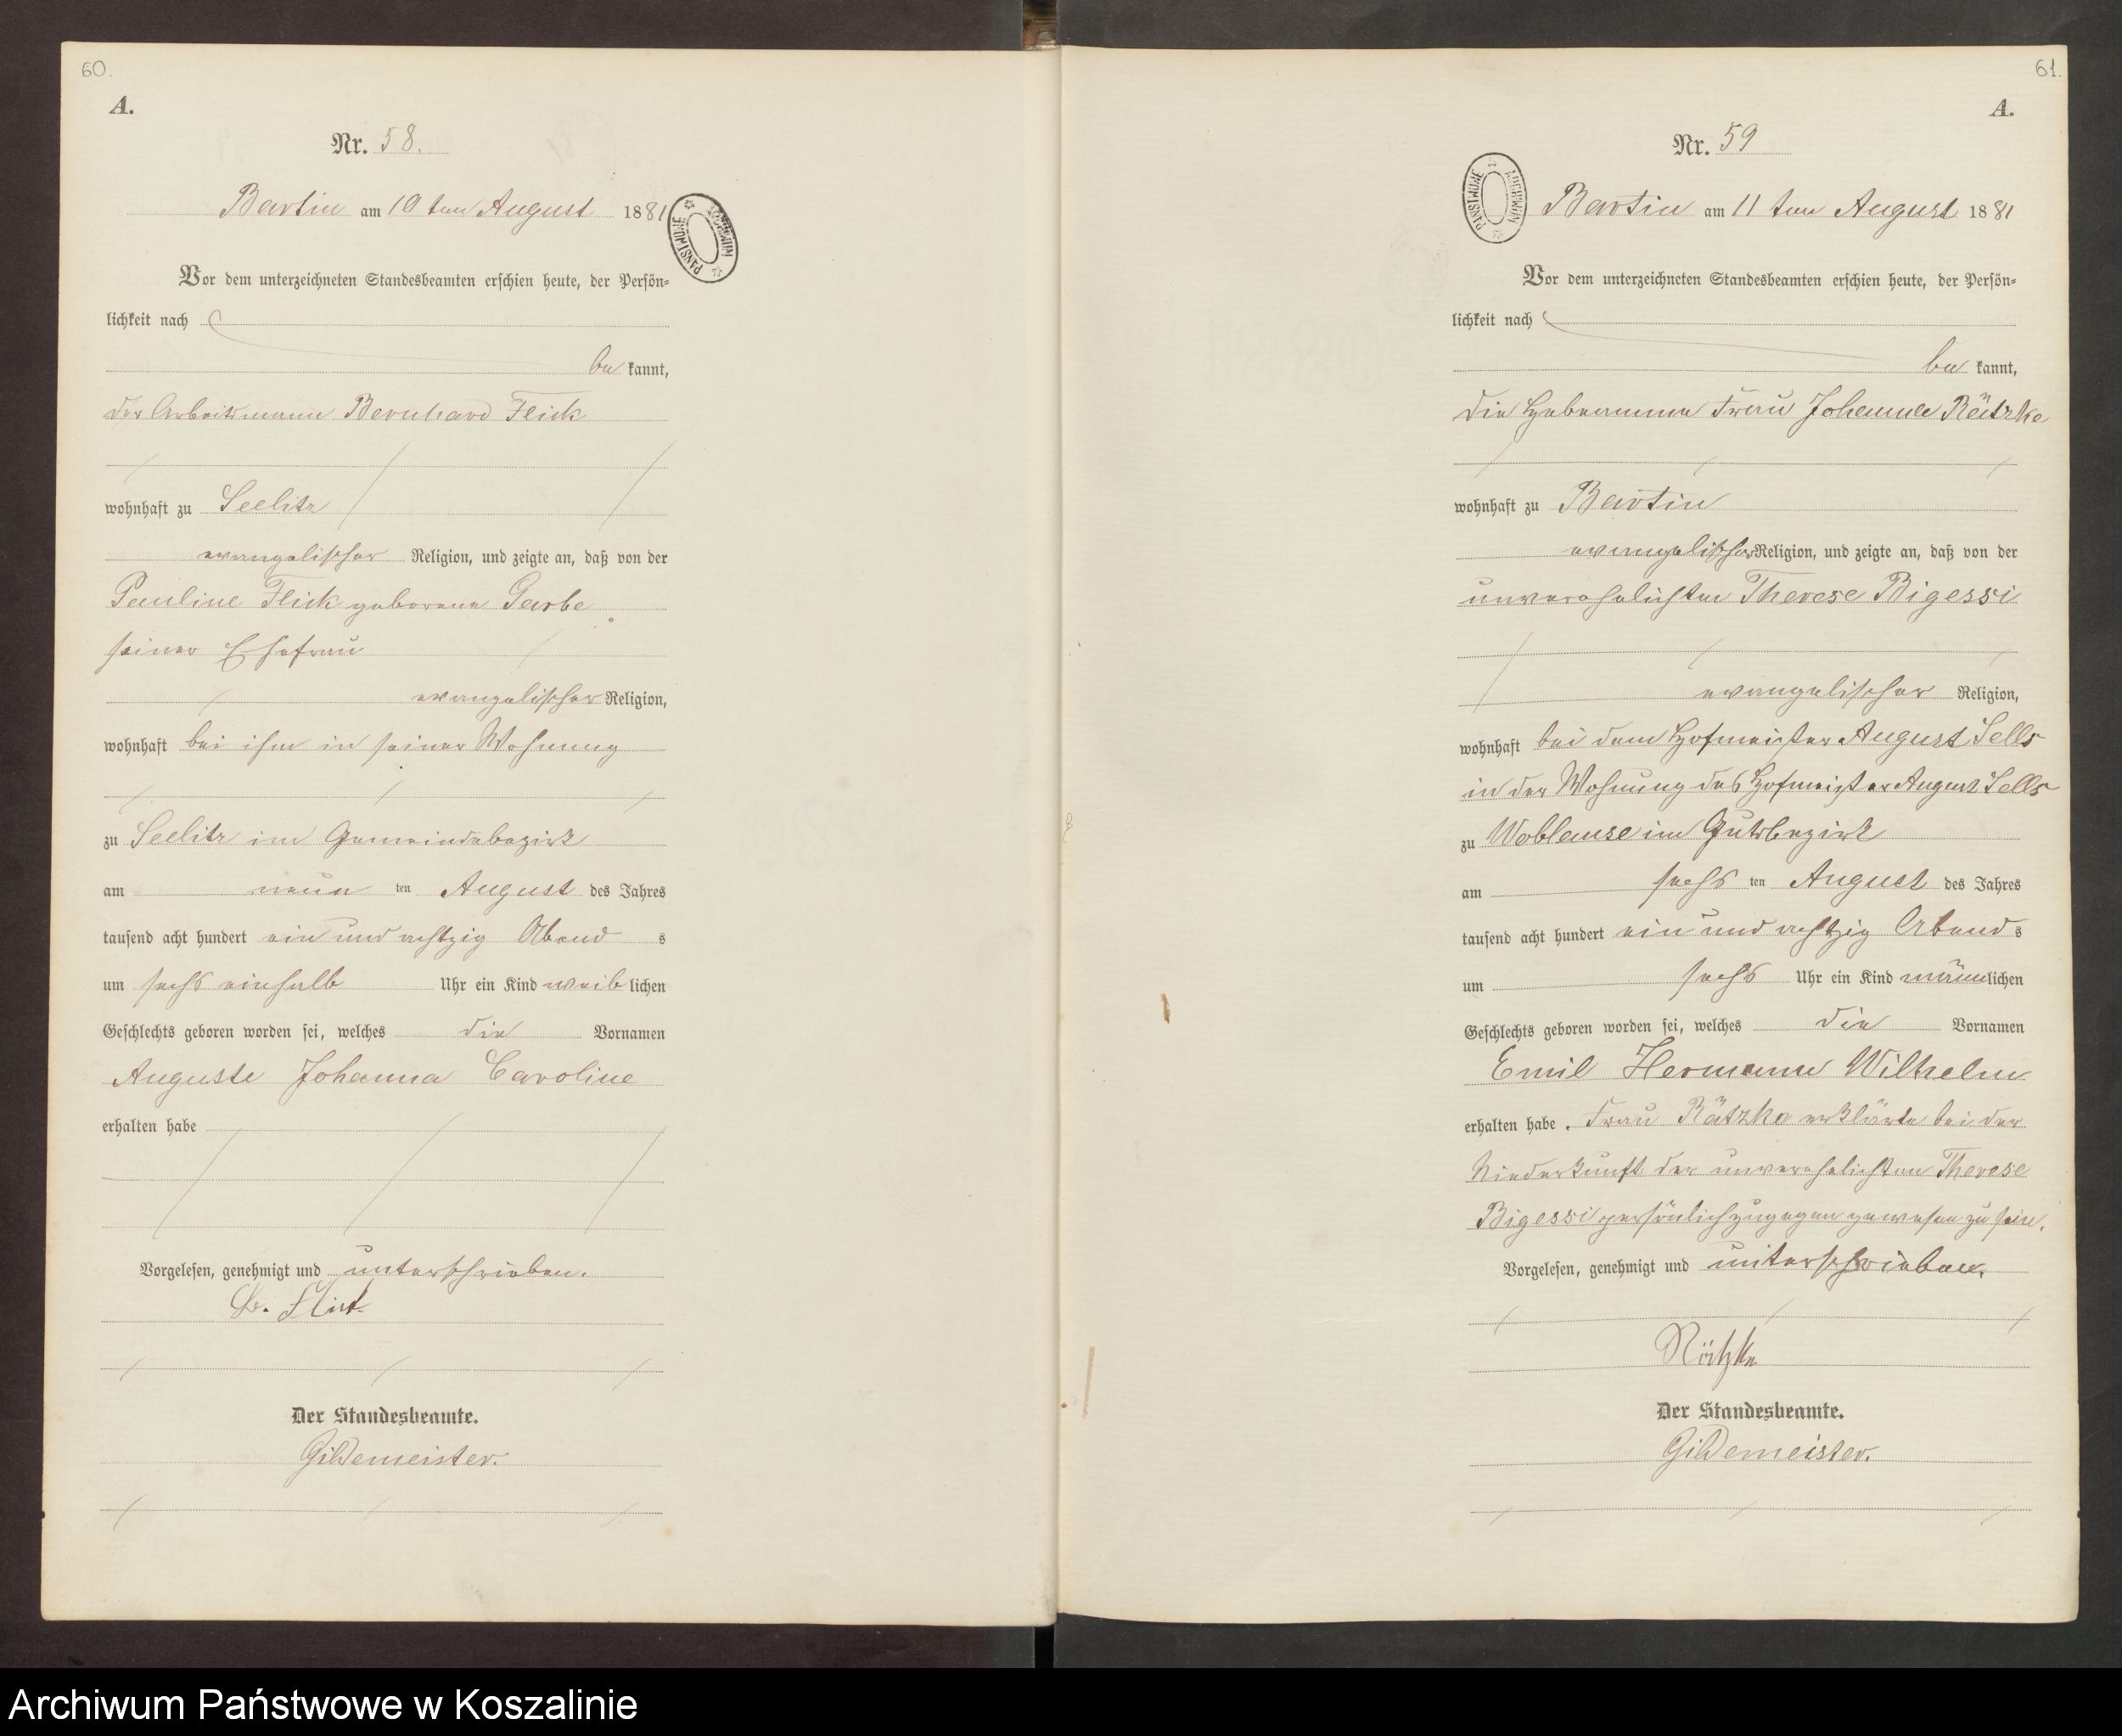 60.
A.
Nr. 58.
Bartin am 10 ten August 1881
Vor dem unterzeichneten Standesbeamten erschien heute, der Persön-
lichkeit nach
be kannt,
der Arbeitsmann Bernhard Flick
wohnhaft zu Seelitz
evangelischer Religion, und zeigte an, daß von der
Pauline Flick geborene Garbe
seiner Ehefrau
evangelischer Religion,
wohnhaft bei ihm in seiner Wohnung
zu Seelitz im Gemeindebezirk
am neun ten August des Jahres
tausend acht hundert ein und achtzig Abend s
um sechs einhalb Uhr ein Kind weib lichen
Geschlechts geboren worden sei, welches die Vornamen
Auguste Johanna Caroline
erhalten habe
Vorgelesen, genehmigt und unterschrieben.
Der Standesbeamte.
Gildemeister.
PAŃSTWOWE ARCHIWUM
61.
A.
Nr. 59
Bartin am 11 ten August 1881
Vor dem unterzeichneten Standesbeamten erschien heute, der Persön-
lichkeit nach
be kannt,
die Hebeamme Frau Johanna Rätzke
wohnhaft zu Bartin
evangelischer Religion, und zeigte an, daß von der
unverehelichten Therese Bigessi
evangelischer Religion,
wohnhaft bei dem Hofmeister August Sells
in der Wohnung des Hofmeister August Sells
zu Woblanse im Gutsbezirk
am sechs ten August des Jahres
tausend acht hundert ein und achtzig Abend s
um sechs Uhr ein Kind männlichen
Geschlechts geboren worden sei, welches die Vornamen
Emil Hermann Wilhelm
erhalten habe. Frau Rätzke erklärte bei der
Niederkunft der unverehelichten Therese
Bigessi persönlich zugegen gewesen zu sein.
Vorgelesen, genehmigt und unterschrieben.
Rätzke
Der Standesbeamte.
Gildemeister.
PAŃSTWOWE ARCHIWUM
Archiwum Państwowe w Koszalinie